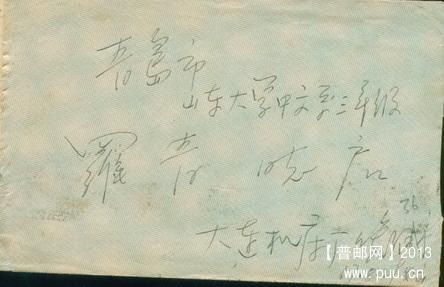 青岛市
山东大学中文系三年级
罗青 收启
大连机床厂
【普邮网】2013
www.puu.cn